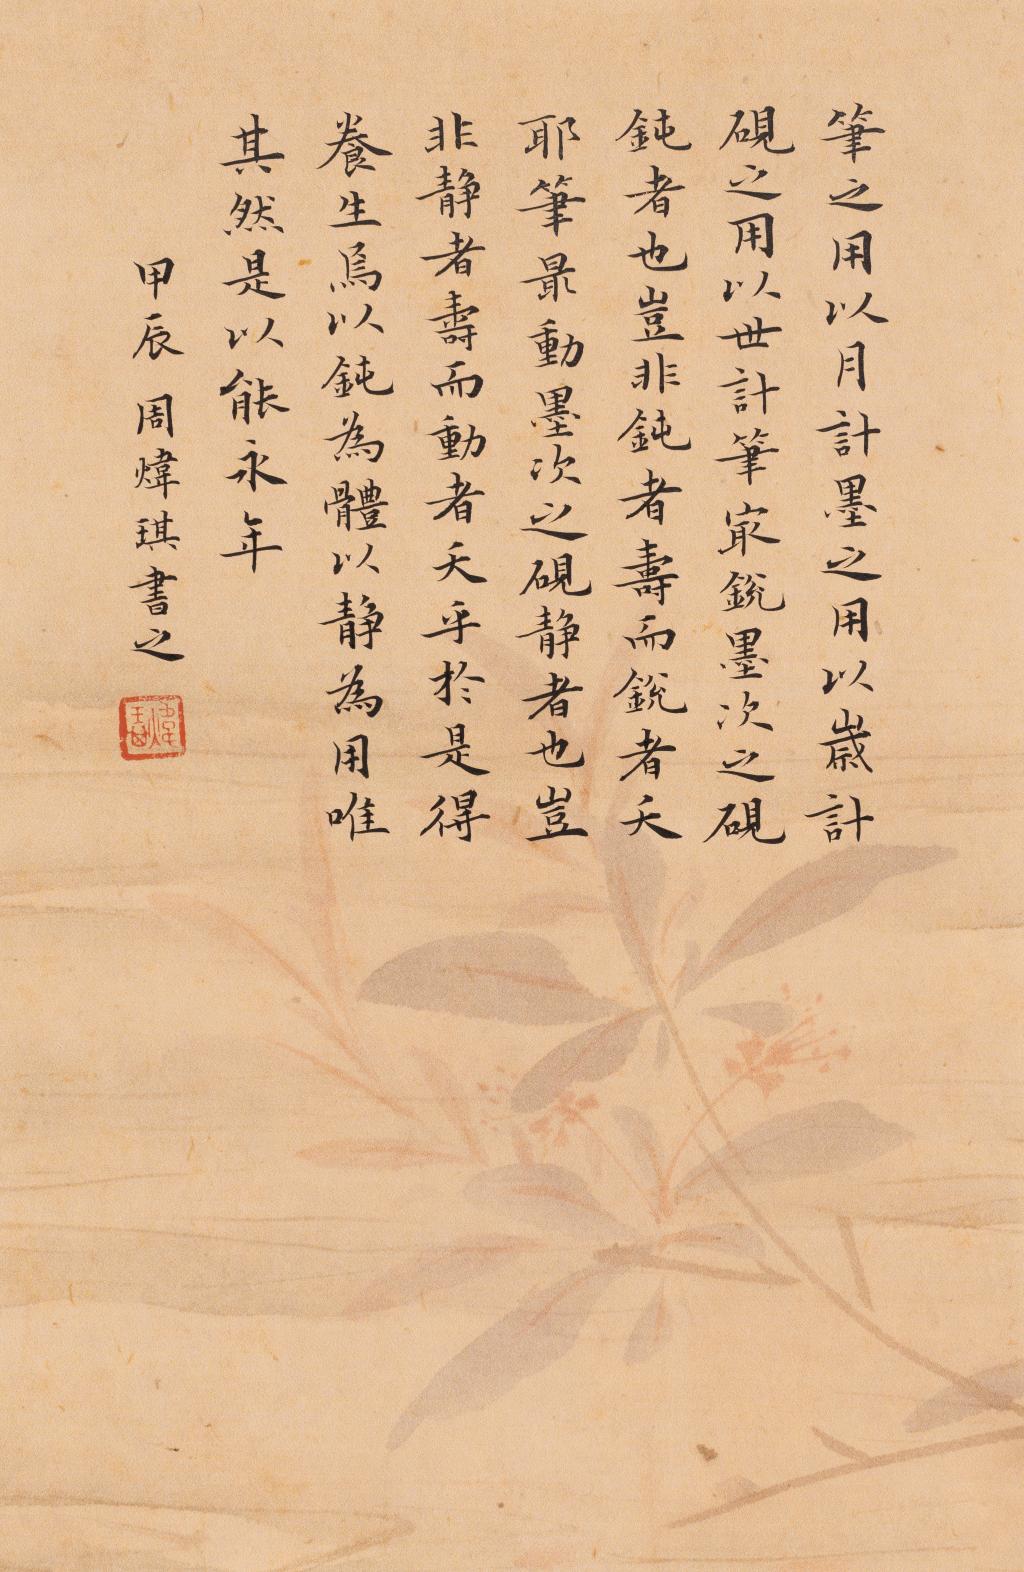 筆之用以月計墨之用以歲計
硯之用以世計筆㝡銳墨次之硯
鈍者也豈非鈍者壽而銳者夭
耶筆最動墨次之硯静者也豈
非静者壽而動者夭乎於是得
養生焉以鈍為體以静為用唯
其然是以能永年
甲辰 周煒琪書之